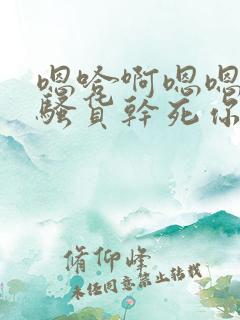 嗯哈啊嗯嗯
骚貟幹死你
脩仰峰
未经同意禁止转载